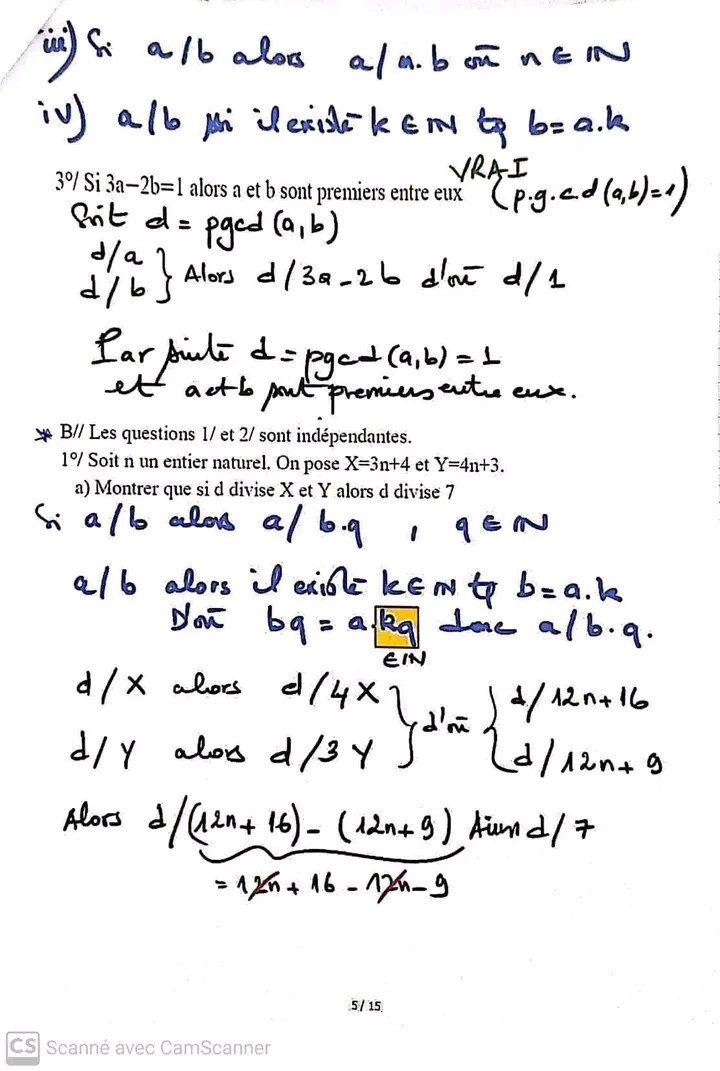 iii) Si a/b alors a/n.b où n ∈ IN
iv) a/b ssi il existe k ∈ IN tq b = a.k
3°/ Si 3a−2b=1 alors a et b sont premiers entre eux VRAI (p.g.c.d (a,b)=1)
Soit d = pgcd (a,b)
d/a
d/b } Alors d/3a-2b d'où d/1
Par suite d = pgcd (a,b) = 1
et a et b sont premiers entre eux.
B// Les questions 1/ et 2/ sont indépendantes.
1°/ Soit n un entier naturel. On pose X=3n+4 et Y=4n+3.
a) Montrer que si d divise X et Y alors d divise 7
Si a/b alors a/b.q , q ∈ IN
a/b alors il existe k ∈ IN tq b = a.k
D'où bq = a.kq donc a/b.q.
∈ IN
d/X alors d/4X } d'où { d/12n+16
d/Y alors d/3Y } { d/12n+9
Alors d/(12n+16) - (12n+9) Ainsi d/7
= 12n + 16 - 12n - 9
5/ 15
CS Scanné avec CamScanner